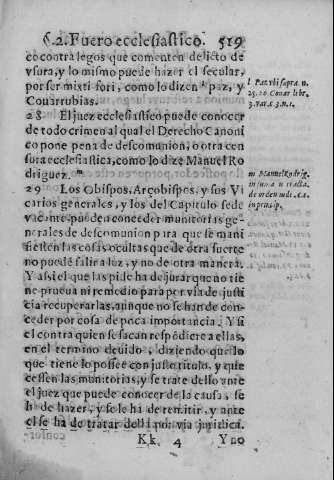 §.2. Fuero ecclesiastico. 519
co contra legos que cometen delicto de
vsura, y lo mismo puede hazer el secular,
por ser mixti fori, como lo dizen l paz, y
Couarrubias.
l Paz vbi supra n.
25. 26 Couar libr.
3. var. c. 3. n. 1.
28 El juez ecclesiastico puede conocer
de todo crimen al qual el Derecho Canoni
co pone pena de descomunion, o otra cen
sura ecclesiastica, como lo dize Manuel Ro
driguez. m
m Manuel Rodrig.
in suma tracta.
de orden iudi. c. 1.
in princip.
29 Los Obispos, Arçobispos, y sus Vi
carios generales, y los del Capitulo sede
vacante pueden conceder munitorias ge-
nerales de descomunion para que se mani
fiesten las cosas ocultas que de otra suerte
no puede salir a luz, y no de otra manera.
Y assi el que las pide ha de jurar que no tie
ne prueua ni remedio para per via de justi
cia recuperarlas, aunque no se han de con-
ceder por cosa de poca importancia. Y si
el contra quien se sacan respõdiere a ellas,
en el termino deuido, diziendo que lo
que tiene lo possee con justo titulo, y que
cessen las munitorias, y se trate dello ante
el juez que puede conocer de la causa, se
ha de hazer, y se le ha de remitir, y ante
el se ha de tratar dello por via juridica.
Kk 4 Y no